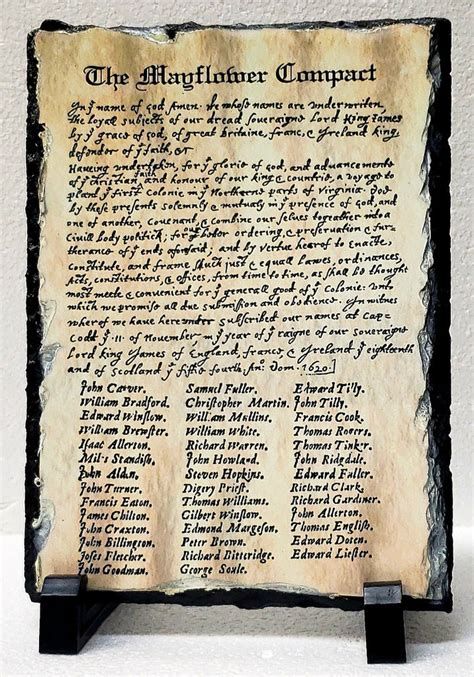 The Mayflower Compact
In yͤ name of god Amen. We whose names are underwriten,
the loyal subjects of our dread soveraigne Lord King James
by yͤ grace of god, of great britaine, franc, & Ireland king,
defendor of yͤ faith, &c
Haveing undertaken, for yͤ glorie of god, and advancemente
of yͤ christian faith and honour of our king & countrie, a voyage to
plant yͤ first Colonie in yͤ Northerne parts of Virginia. Doe
by these presents solemnly & mutualy in yͤ presence of god, and
one of another, Covenant, & combine our selves togeather into a
Civill body politick; for our better ordering, & preservation & fur-
therance of yͤ ends aforesaid; and by vertue hearof to enacte,
Constitute, and frame shuch just & equall lawes, ordinances,
Acts, constitutions, & offices, from time to time, as shall be thought
most meete & convenient for yͤ generall good of yͤ Colonie: unto
which we promise all due submission and obedience. In witnes
wherof we have hereunder subscribed our names at Cap-
Codd yͤ .11. of November, in yͤ year of yͤ raigne of our soveraigne
Lord king James of England, france, & Ireland yͤ eighteenth
and of Scotland yͤ fiftie fourth. An: Dom. 1620.]
John Carver. Samuel Fuller. Edward Tilly.
William Bradford. Christopher Martin. John Tilly.
Edward Winslow. William Mullins. Francis Cook.
William Brewster. William White. Thomas Rogers.
Isaac Allerton. Richard Warren. Thomas Tinker.
Miles Standish. John Howland. John Ridgdale.
John Alden. Steven Hopkins. Edward Fuller.
John Turner. Digery Priest. Richard Clark.
Francis Eaton. Thomas Williams. Richard Gardiner.
James Chilton. Gilbert Winslow. John Allerton.
John Craxton. Edmond Margeson. Thomas English.
John Billington. Peter Brown. Edward Doten.
Joses Fletcher. Richard Bitteridge. Edward Liester.
John Goodman. George Soule.